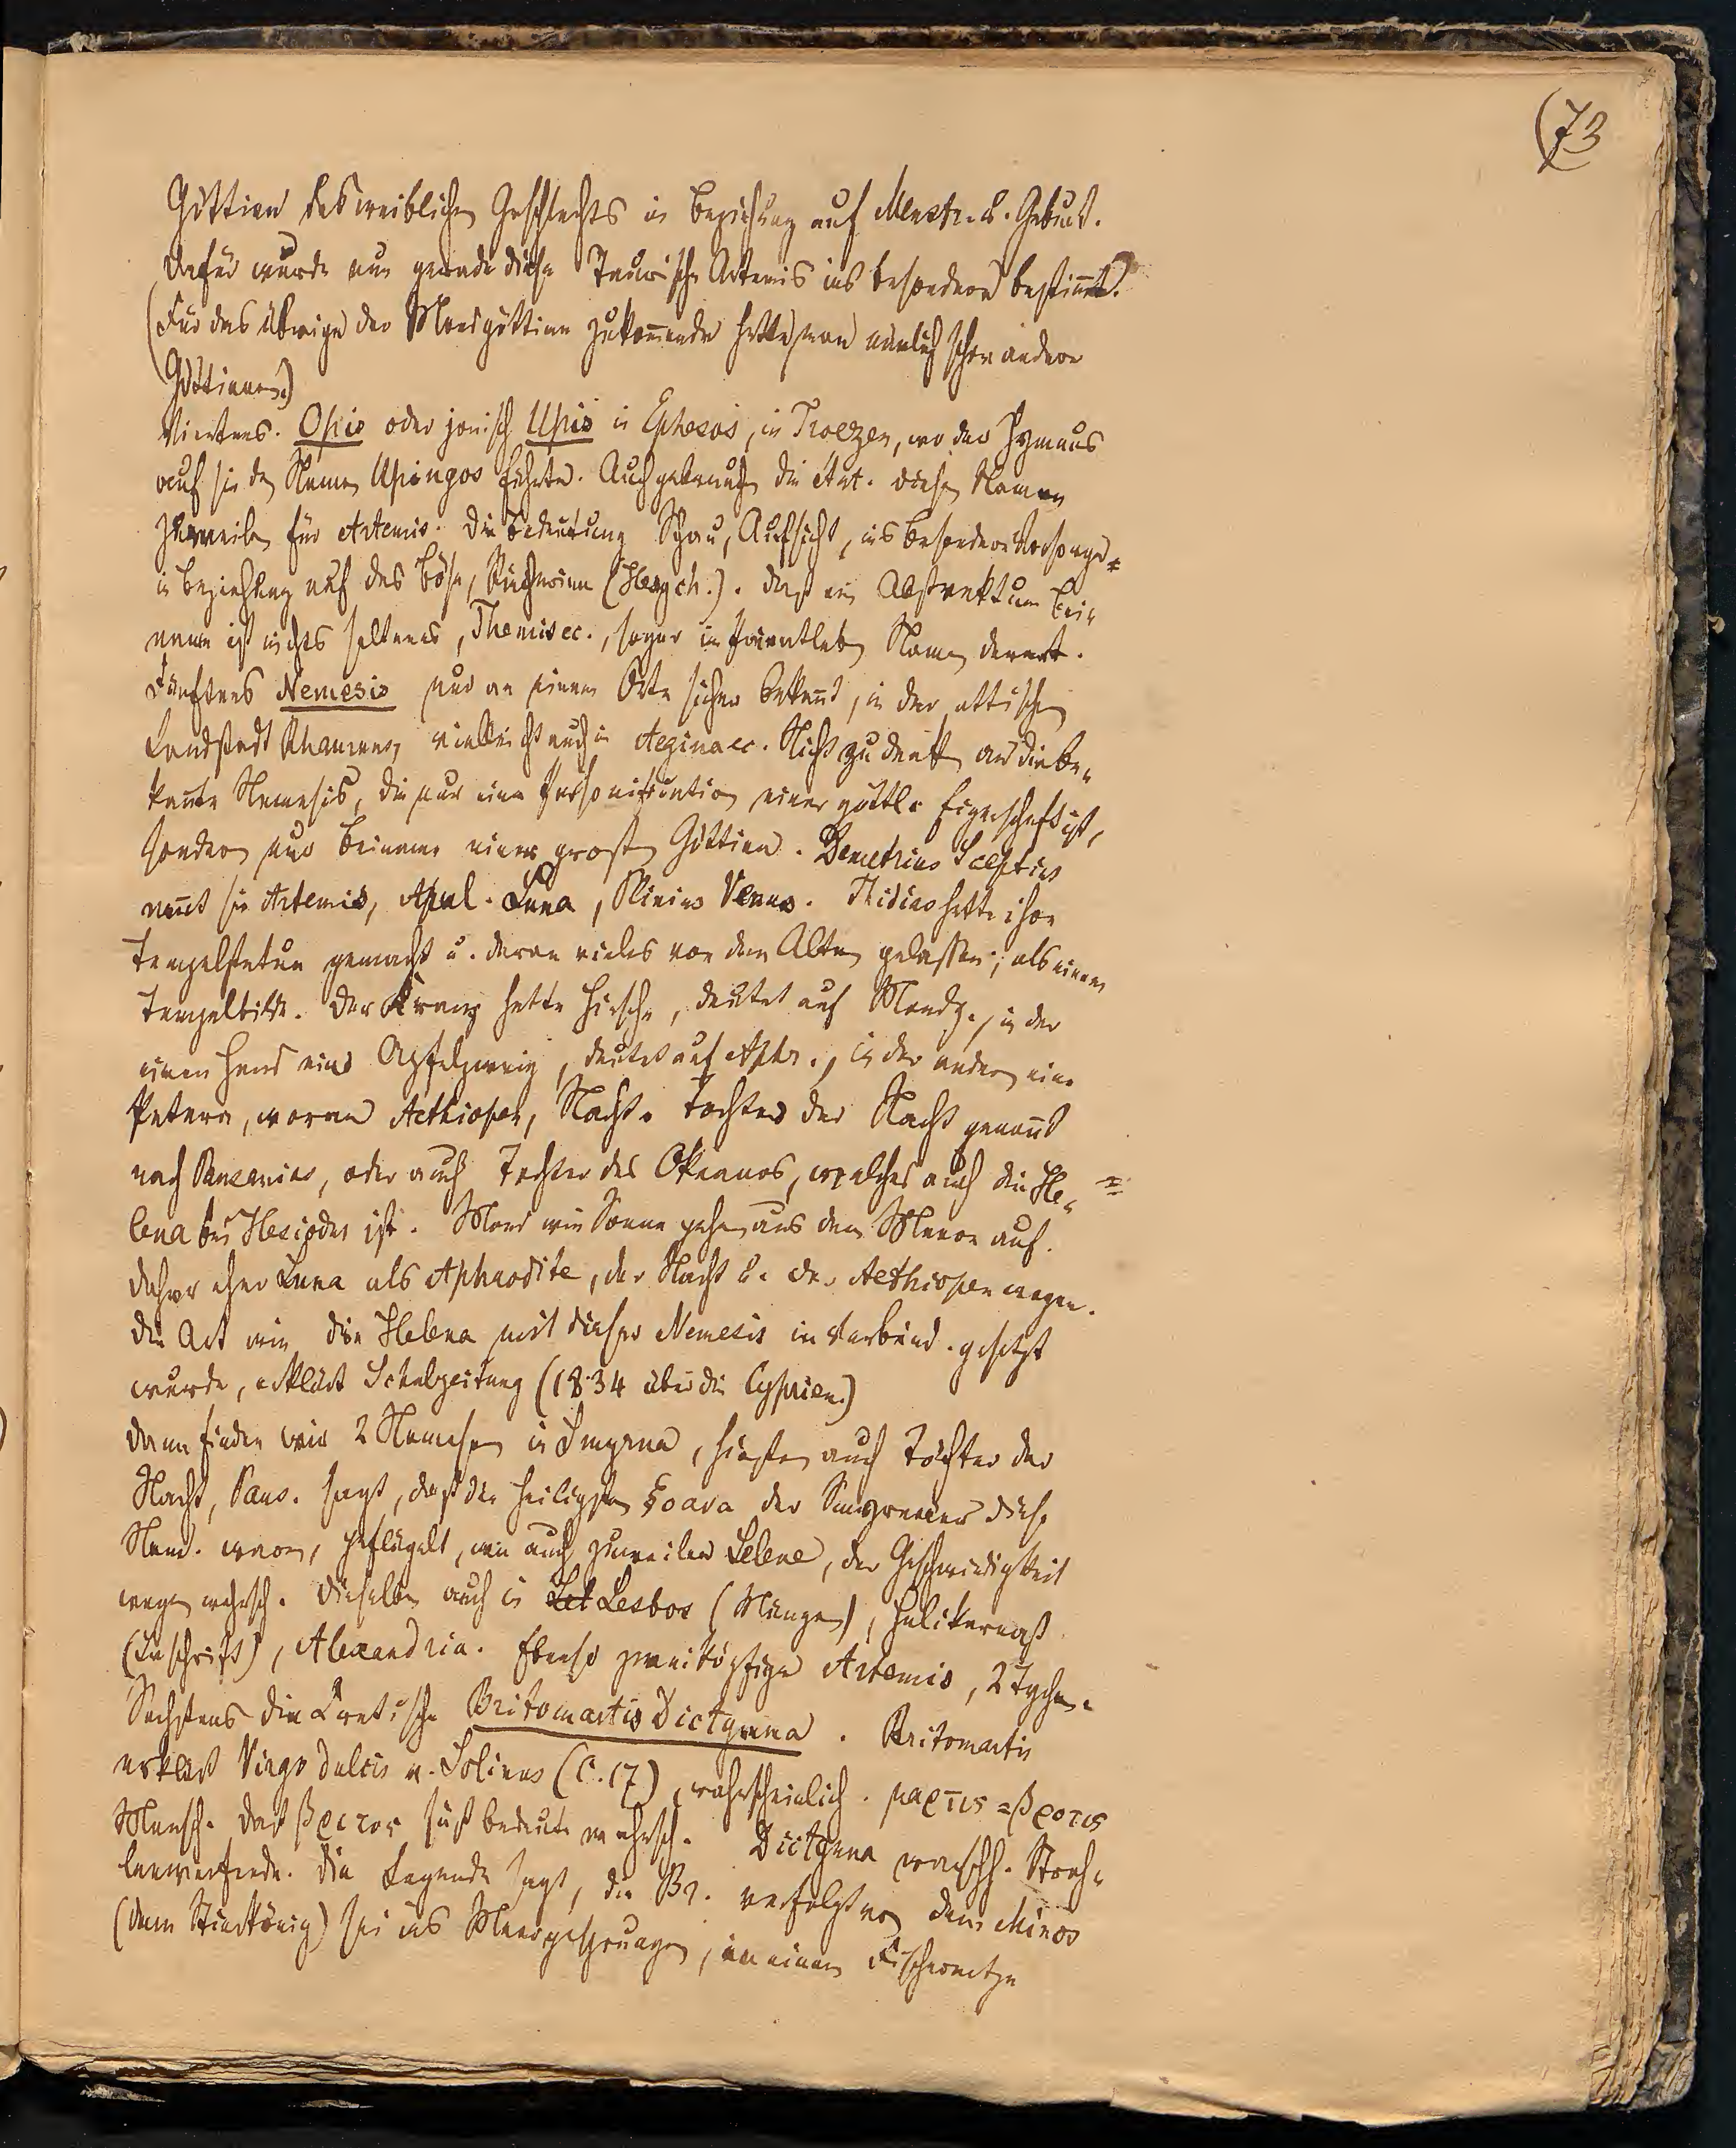 (73
Göttinn des weiblichen Geschlechts in Beziehung auf Menstr. u. Geburt.
Dafür wurde nun gerade diese Taurische Artemis ins besondere bestimmt.
(Für das Übrige der Mondgöttinn zukommende hatte man nämlich schon andere
Göttinnen.)
Viertens. Opis oder jonisch Upis in Ephesos, in Troezen, wo der Hymnus
auf sie den Namen Upingos führte. Auch gebrauchen die Art. diesen Namen
zuweilen für Artemis. Die Bedeutung Schau, Aufsicht, ins besondere Vorsorge
in Beziehung auf das Böse, Rächerinn (Hesych.). Daß ein Abstraktum Bei-
name ist nichts seltenes, Themis ec., sogar im Privatleben Namen derart.
Fünftens Nemesis nur an einem Orte sicher bekannt, in der attischen
Landstadt Rhamnus, vielleicht auch in Aegina ec. Nicht zu denken an die be-
kannte Nemesis, die nur eine Personification einer göttl. Eigenschaft ist,
sondern nur Beiname einer großen Göttinn. Demetrius Scepsius
nennt sie Artemis, Apul. Luna, Plinius Venus. Phidias hatte ihre
Tempelstatue gemacht u. daran vieles von dem Alten gelassen, als einem
Tempelbilde. Der Kranz hatte Hirsche, deutet auf Mondg., in der
einen Hand eine Apfelzweig, deutet auf Aphr., in der andern eine
Patera, woran Aethiopen, Nacht. Tochter der Nacht genannt
nach Pausanias, oder auch Tochter des Okeanos, welches auch die He-
lena bei Hesiodus ist. Mond wie Sonne gehen aus dem Meere auf.
Daher eher Luna als Aphrodite, der Nacht u. der Aethiopen wegen.
Die Art wie die Helena mit dieser Nemesis in Verbind. gesetzt
wurde, erklärt Schulzeitung (1834 über die Cyprien.)
Dann finden wir 2 Nemesen in Smyrna, hießen auch Töchter der
Nacht, Paus. sagt, daß die heiligsten ξοανα der Smyrnaeer diese
Nem. waren, geflügelt, wie auch zuweilen Selene, der Geschwindigkeit
wegen wahrsch. Dieselben auch in Let Lesbos (Münzen), Halikarnaß
(Inschrift), Alexandria. Ebenso zweiköpfige Artemis, 2 Tychen.
Sechstens die Cretische Britomartis Dictynna. Britomartis
erklärt Virgo dulcis v. Solinus (C. 17), wahrscheinlich. μαρτις = βροτις
Mensch. Daß βριτον süß bedeute wahrsch. Dictynna wahrsch. Strah-
lenwerfende. Die Legende sagt, die Br. verfolgt von dem Minos
(dem Stierkönig) sei ins Meer gesprungen, in einem Fischernetze